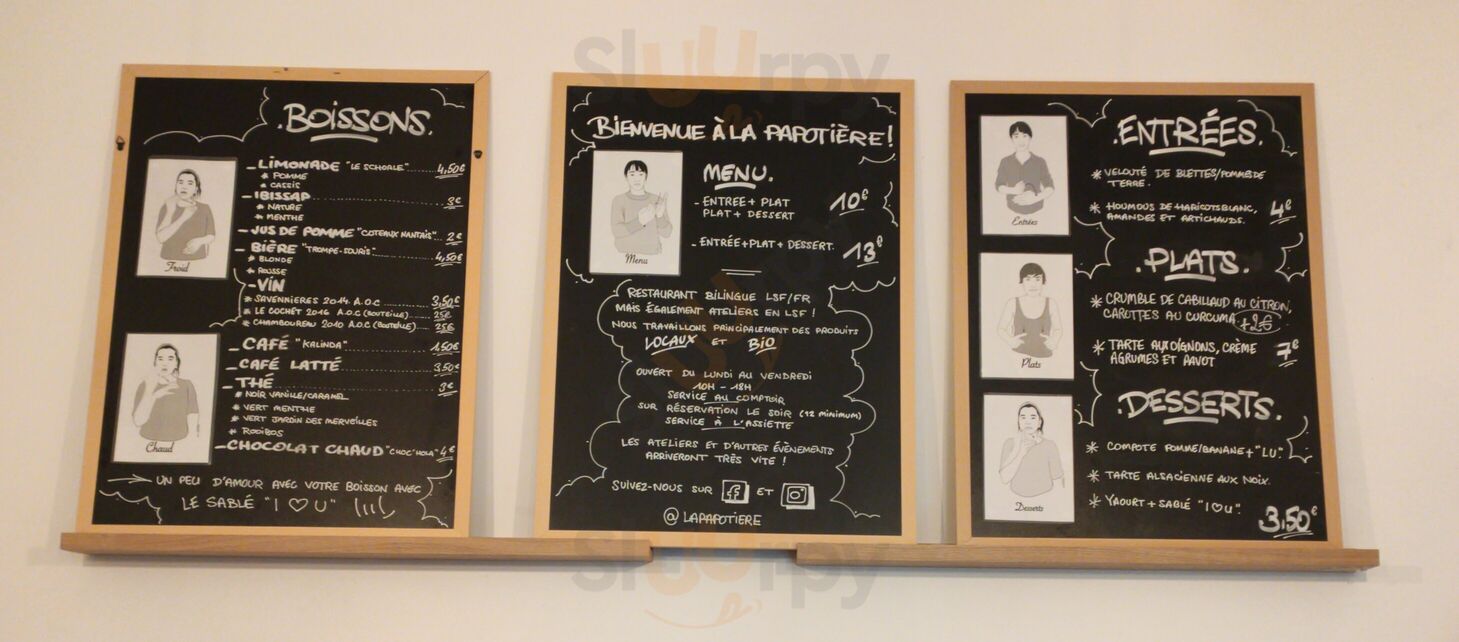 Sluurpy
.BOISSONS.
_LIMONADE "LE SCHORLE"......... 4,50€
* POMME
* CASSIS
_IBISSAP 3€
* NATURE
* MENTHE
_JUS DE POMME "COTEAUX NANTAIS".. 2€
_BIÈRE "TROMPE-SOURIS" 4,50€
* BLONDE
* ROUSSE
_VIN
* SAVENNIERES 2014 A.O.C 3,50€
* LE COCHET 2016 A.O.C (BOUTEILLE).... 25€
* CHAMBOUREAU 2010 A.O.C (BOUTEILLE).... 25€
Froid
_CAFÉ "KALINDA" 1,50€
_CAFÉ LATTÉ 3,50€
_THÉ 3€
* NOIR VANILLE/CARAMEL
* VERT MENTHE
* VERT JARDIN DES MERVEILLES
* ROOIBOS
_CHOCOLAT CHAUD "CHOC'HOLA" 4€
Chaud
UN PEU D'AMOUR AVEC VOTRE BOISSON AVEC
LE SABLÉ "I ♡ U"
BIENVENUE À LA PAPOTIÈRE!
MENU.
- ENTREE + PLAT 10€
PLAT + DESSERT
- ENTRÉE+PLAT+DESSERT. 13€
Menu
RESTAURANT BILINGUE LSF/FR
MAIS ÉGALEMENT ATELIERS EN LSF !
NOUS TRAVAILLONS PRINCIPALEMENT DES PRODUITS
LOCAUX ET BIO
OUVERT DU LUNDI AU VENDREDI
10H - 18H
SERVICE AU COMPTOIR
SUR RÉSERVATION LE SOIR (12 MINIMUM)
SERVICE À L'ASSIETTE
LES ATELIERS ET D'AUTRES ÉVÈNEMENTS
ARRIVERONT TRÈS VITE !
SUIVEZ-NOUS SUR f ET
@LAPAPOTIERE
.ENTRÉES.
* VELOUTÉ DE BLETTES/POMMES DE
TERRE.
* HOUMOUS DE HARICOTS BLANC,
AMANDES ET ARTICHAUDS. 4€
Entrées
.PLATS.
* CRUMBLE DE CABILLAUD AU CITRON,
CAROTTES AU CURCUMA +2€
* TARTE AUX OIGNONS, CRÈME
AGRUMES ET PAVOT 7€
Plats
.DESSERTS.
* COMPOTE POMME/BANANE+"LU".
* TARTE ALSACIENNE AUX NOIX.
* YAOURT + SABLÉ "I♡U".
3,50€
Desserts
Sluurpy